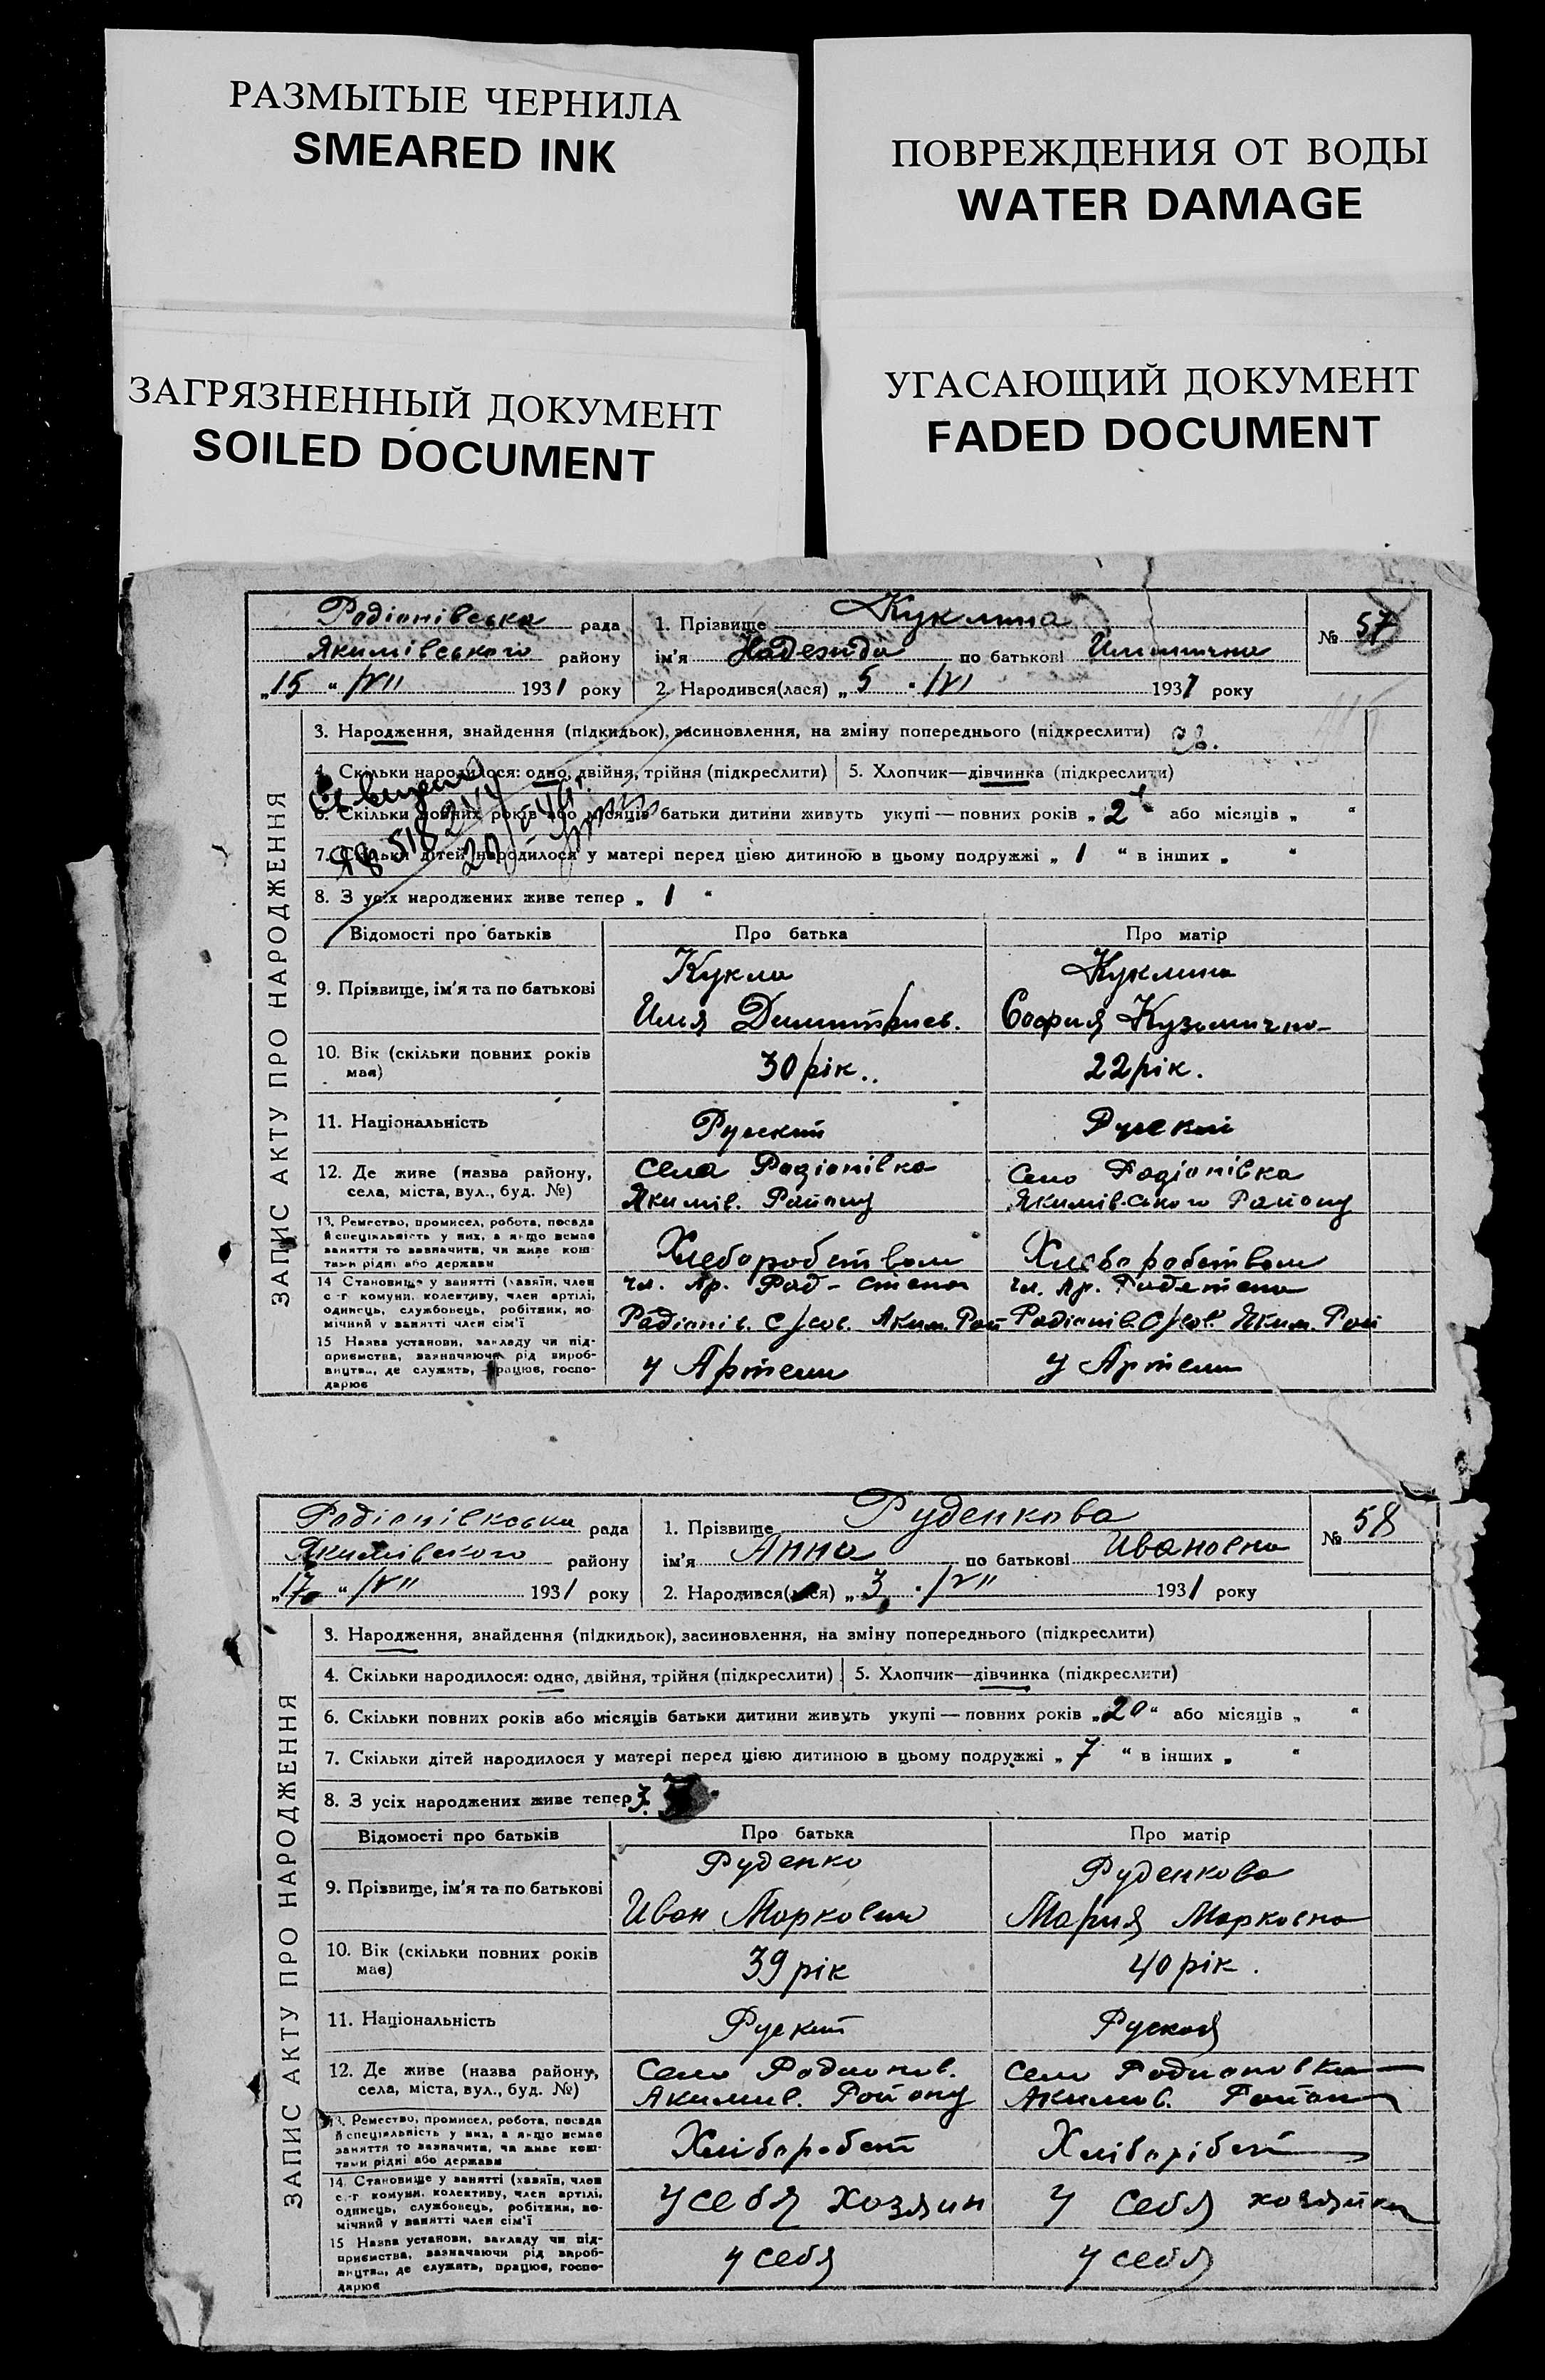 РАЗМЫТЫЕ ЧЕРНИЛА
SMEARED INK
ПОВРЕЖДЕНИЯ ОТ ВОДЫ
WATER DAMAGE
ЗАГРЯЗНЕННЫЙ ДОКУМЕНТ
SOILED DOCUMENT
УГАСАЮЩИЙ ДОКУМЕНТ
FADED DOCUMENT
ЗАПИС АКТУ ПРО НАРОДЖЕННЯ
Радіонівська рада
Якимівського району
„15 “ /VII 1931 року
1. Прізвище Куклина
ім'я Надежда по батькові Илиинична
2. Народився(лася) „ 5 “ /VI 1931 року
№ 57
3. Народження, знайдення (підкидьок), засиновлення, на зміну попереднього (підкреслити)
4. Скільки народилося: одно, двійня, трійня (підкреслити) 5. Хлопчик—дівчинка (підкреслити)
6. Скільки повних років або місяців батьки дитини живуть укупі — повних років „ 2 “ або місяців „ “
7. Скільки дітей народилося у матері перед цією дитиною в цьому подружжі „ 1 “ в інших „ “
8. З усіх народжених живе тепер „ 1 “
Відомості про батьків Про батька Про матір
9. Прізвище, ім'я та по батькові
Кукла
Илия Димитриев.
Куклина
София Кузьминична
10. Вік (скільки повних років має) 30 рік.. 22 рік.
11. Національність Руский Руский
12. Де живе (назва району, села, міста, вул., буд. №)
села Радіонівка
Якимів. Району
село Радіонівка
Якимівського Району
13. Ремество, промисел, робота, посада й спеціяльність у них, а якщо немає заняття то зазначити, чи живе коштами рідні або держави
Хлеборобством Хлеборобством
14 Становище у занятті (хазяїн, член с.-г комуни, колективу, член артілі, одинець, службовець, робітник, помічний у занятті член сім'ї
чл. Ар.
Радіонів. С/сов. Аким. Рай
чл. Ар.
Радіонів С/сов. Яким. Рай
15 Назва установи, закладу чи підприємства, зазначаючи рід виробництва, де служить, працює, господарює
у Артели у Артели
ЗАПИС АКТУ ПРО НАРОДЖЕННЯ
Радіонівконська рада
Якимівского району
„17 “ /VII 1931 року
1. Прізвище Руденкова
ім'я Анна по батькові Ивановна
2. Народився(лася) „ 3 “ /VII 1931 року
№ 58
3. Народження, знайдення (підкидьок), засиновлення, на зміну попереднього (підкреслити)
4. Скільки народилося: одно, двійня, трійня (підкреслити) 5. Хлопчик—дівчинка (підкреслити)
6. Скільки повних років або місяців батьки дитини живуть укупі — повних років „ 20 “ або місяців „ “
7. Скільки дітей народилося у матері перед цією дитиною в цьому подружжі „ 7 “ в інших „ “
8. З усіх народжених живе тепер 3
Відомості про батьків Про батька Про матір
9. Прізвище, ім'я та по батькові
Руденко
Иван Маркович
Руденкова
Мария Марковна
10. Вік (скільки повних років має) 39 рік 40 рік.
11. Національність Руский Руская
12. Де живе (назва району, села, міста, вул., буд. №)
Село Радионов.
Акимив. Району
село Радионовка
Акимов. Район
13. Ремество, промисел, робота, посада й спеціяльність у них, а якщо немає заняття то зазначити, чи живе коштами рідні або держави
Хліборобст Хліборібст
14. Становище у занятті (хазяїн, член с.-г комуни, колективу, член артілі, одинець, службовець, робітник, помічний у занятті член сім'ї
у себя хозяин у себя хозяйка
15 Назва установи, закладу чи підприємства, зазначаючи рід виробництва, де служить, працює, господарює
у себя у себя